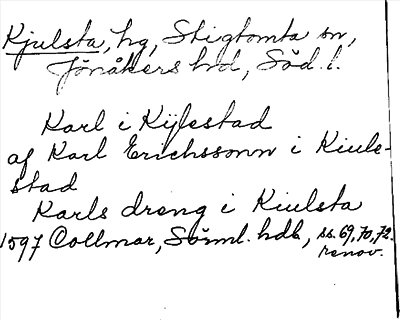 Kjulsta, hg, Stigtomta sn,
Jönåkers hd, Söd. l.
Karl i Kijlestad
af Karl Erichssonn i Kiule-
stad
Karls dreng i Kiulsta
1597 Collmar, Sörml. hdl, ss. 69, 70, 72.
renov.